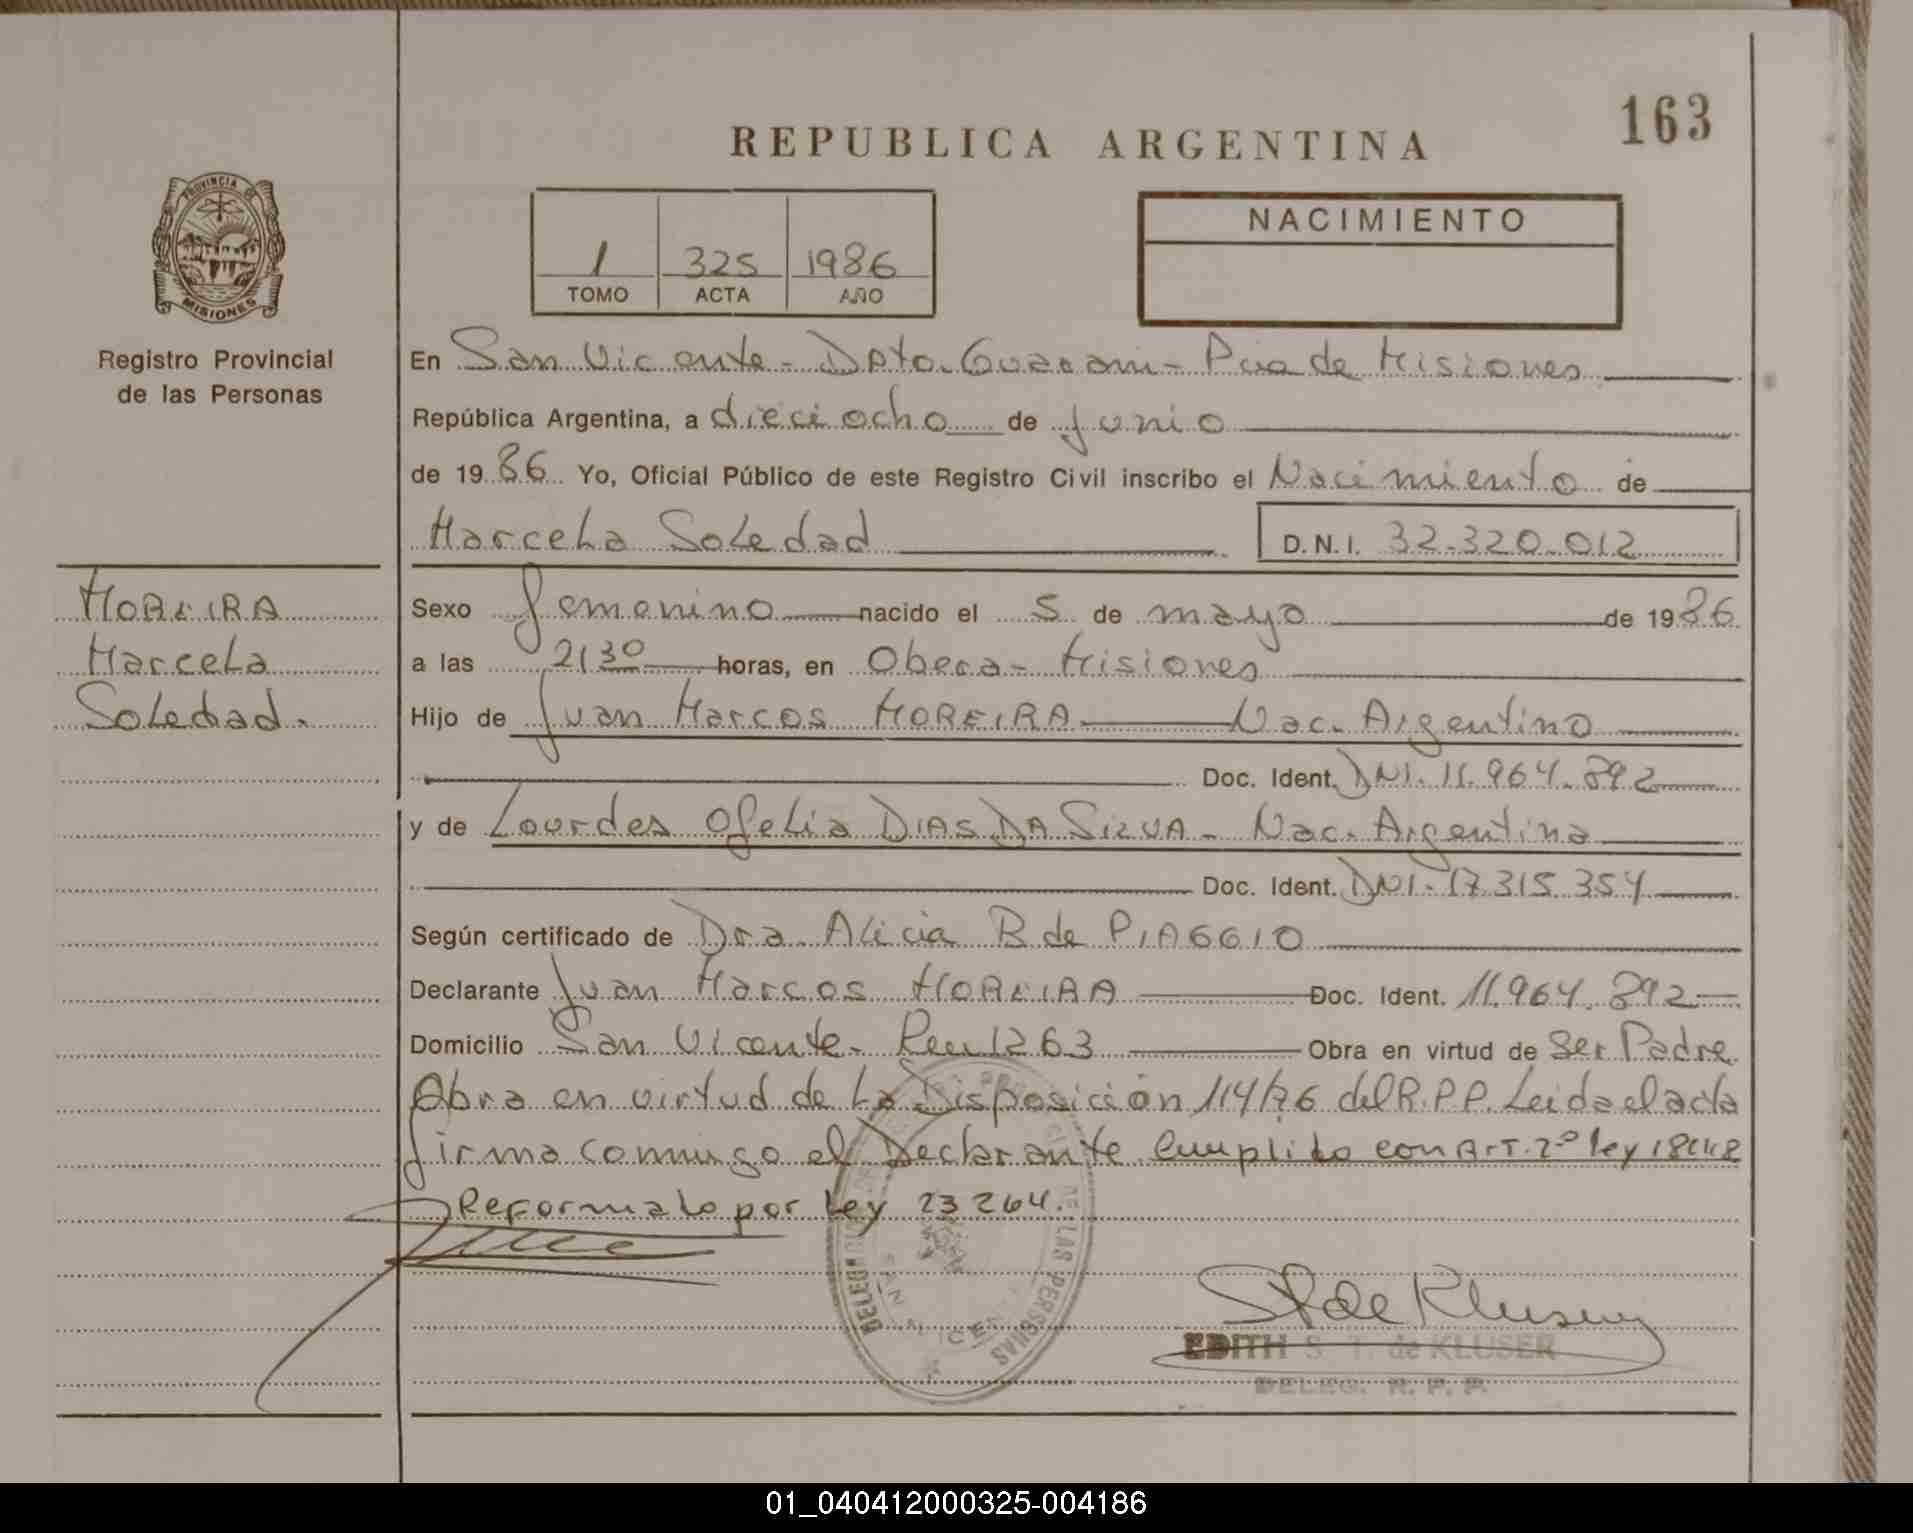 163
REPUBLICA ARGENTINA
PROVINCIA DE
MISIONES
Registro Provincial
de las Personas
1 325 1986
TOMO ACTA AÑO
NACIMIENTO
En San Vicente - Dpto. Guarani - Pcia de Misiones
República Argentina, a dieciocho de junio
de 1986 Yo, Oficial Público de este Registro Civil inscribo el Nacimiento de
Marcela Soledad D.N.I. 32.320.012
MOREIRA
Marcela
Soledad.
Sexo femenino nacido el 5 de mayo de 1986
a las 2130 horas, en Obera - Misiones
Hijo de Juan Marcos MOREIRA Nac. Argentino
Doc. Ident. DNI. 11.964.892
y de Lourdes Ofelia DIAS DA SILVA - Nac. Argentina
Doc. Ident. DNI. 17.315.354
Según certificado de Dra. Alicia B de PIAGGIO
Declarante Juan Marcos MOREIRA Doc. Ident. 11.964.892
Domicilio San Vicente - 1263 Obra en virtud de Ser Padre
Obra en virtud de la Disposición 114/76 del R.P.P. Leida el acta
firma conmigo el Declarante Cumplido con Art. 2º ley 18248
Reformado por Ley 23264.
DE LAS PERSONAS
SAN VICENTE
S T de Kluser
EDITH S. T. de KLUSER
DELEG. R. P. P.
01_040412000325-004186